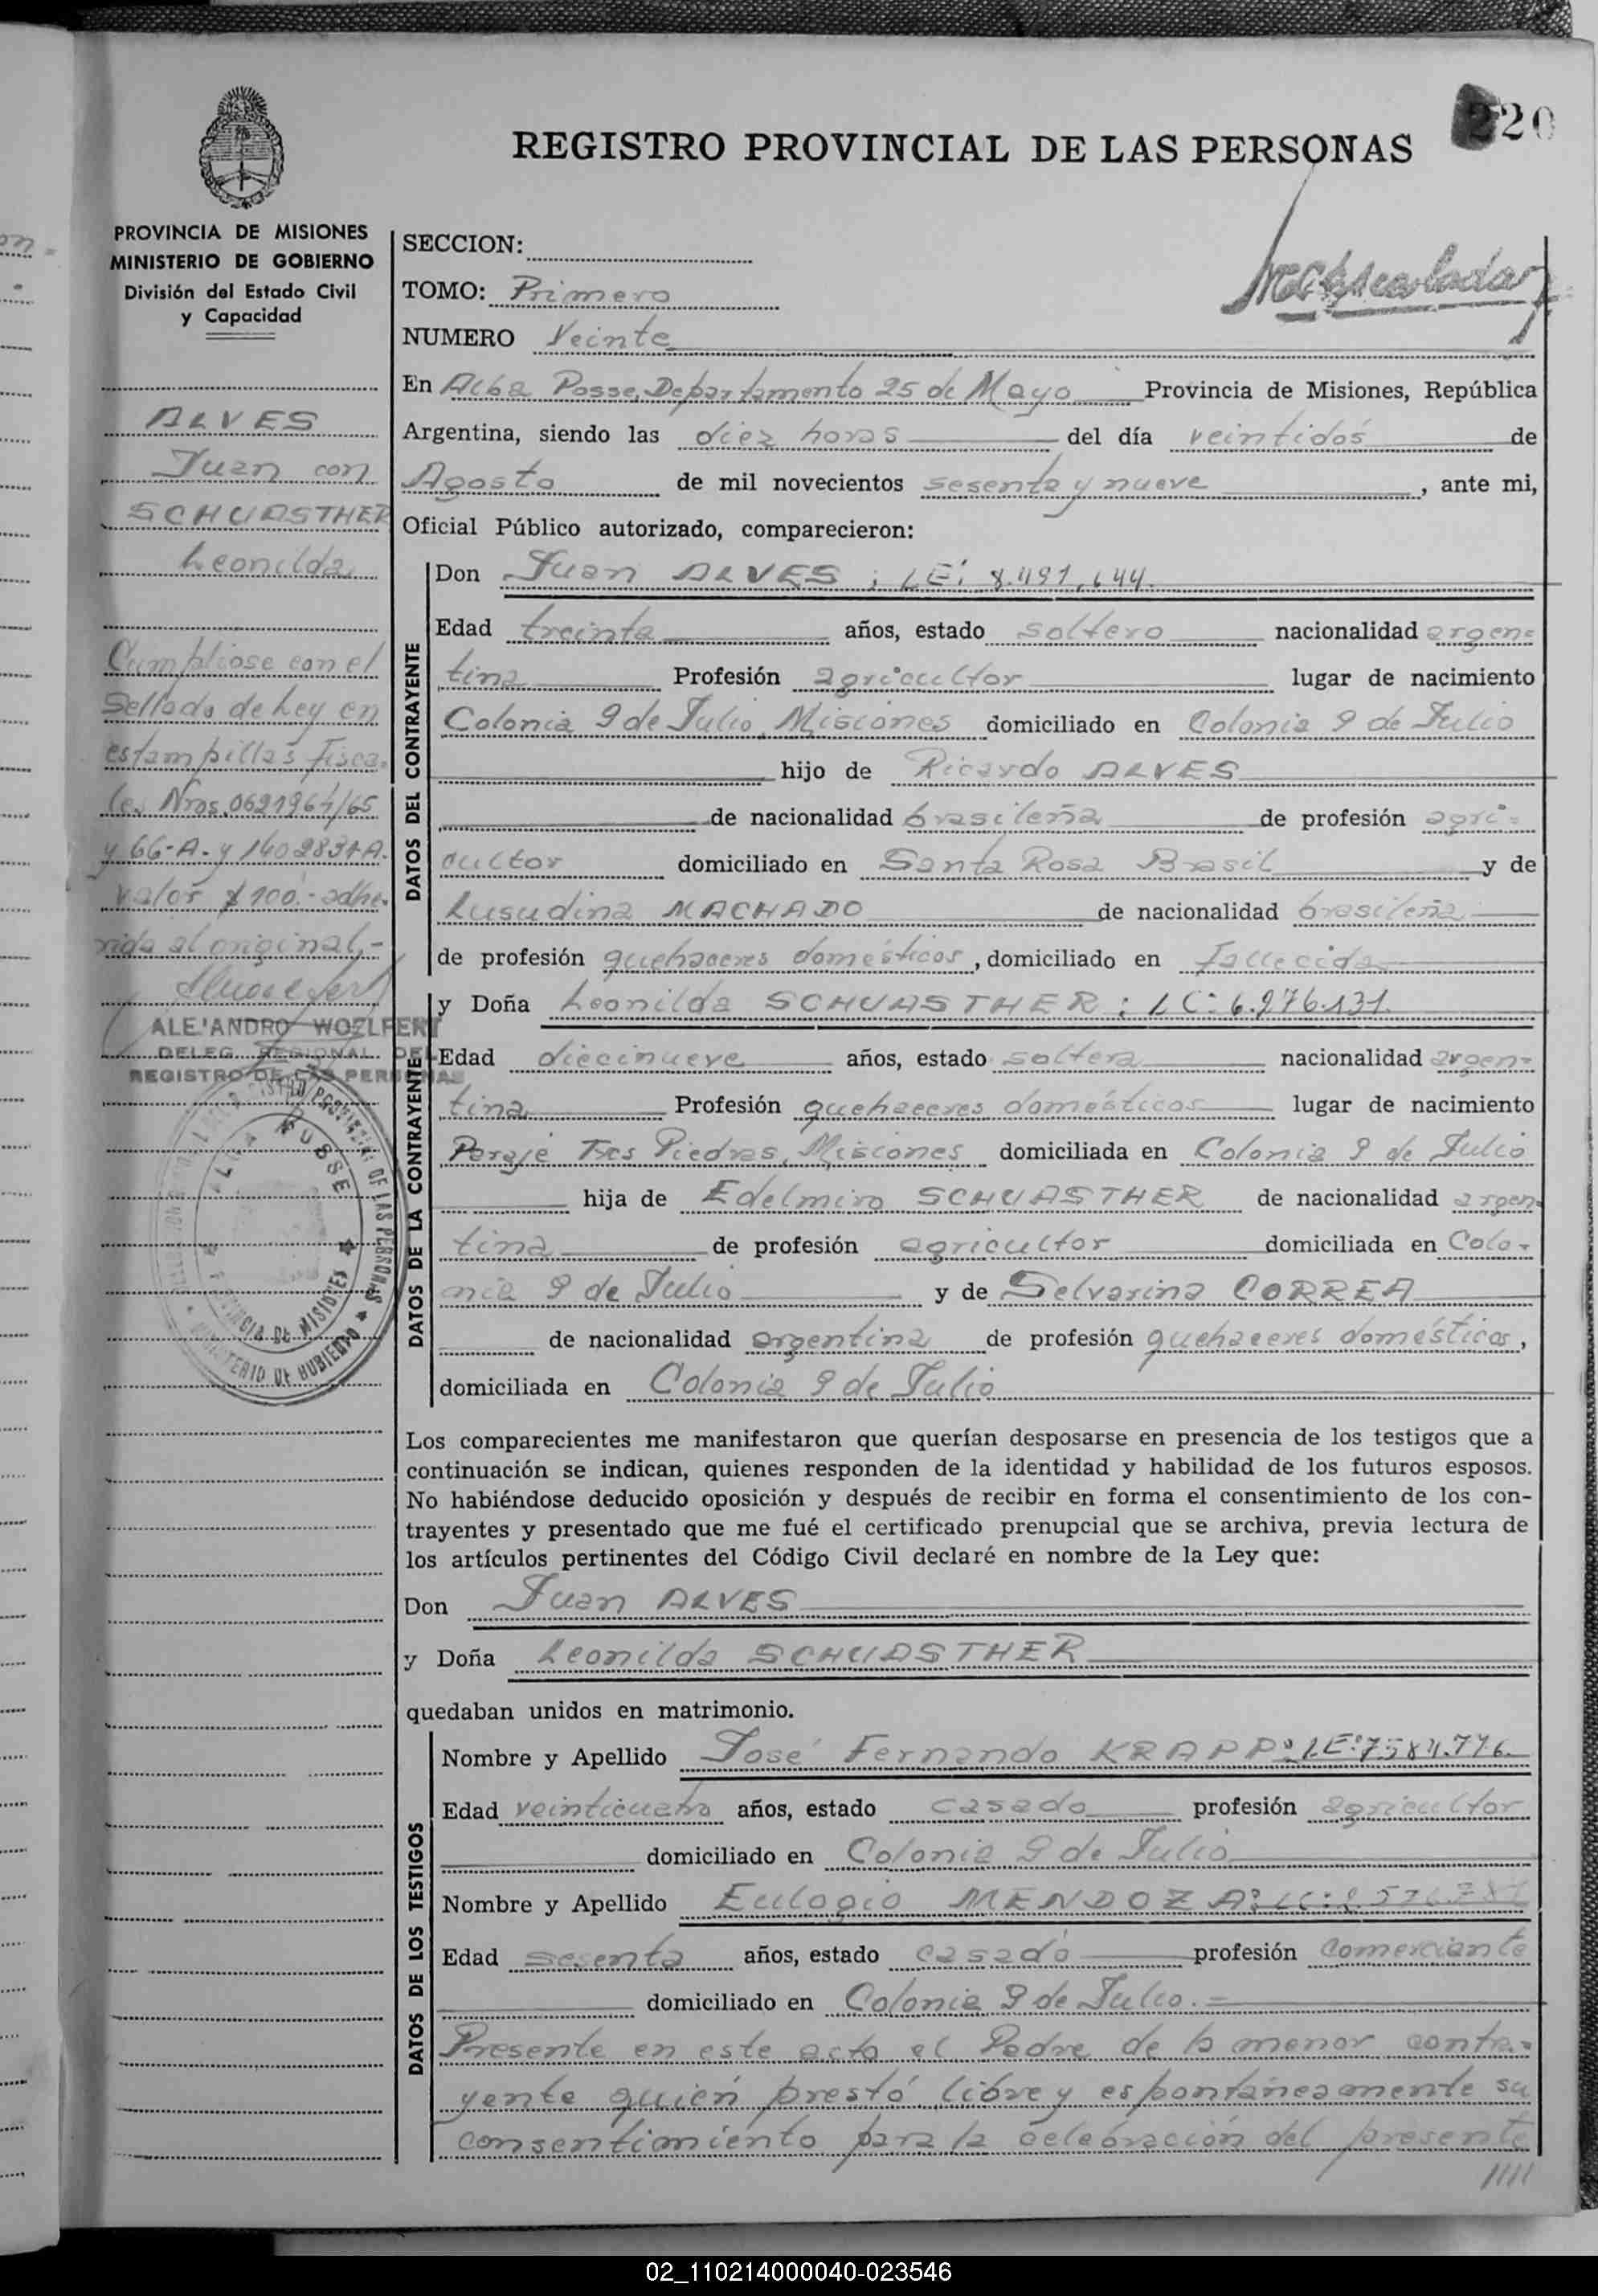 220
REGISTRO PROVINCIAL DE LAS PERSONAS
PROVINCIA DE MISIONES
MINISTERIO DE GOBIERNO
División del Estado Civil
y Capacidad
ALVES
Juan con
SCHUASTHER
Leonilda
Cumpliose con el
Sellado de Ley en
estampillas fisca-
les Nros. 0621964/65
y 66-A- y 1402837A.
valor $ 100.- adhe-
rida al original,-
ALEJANDRO WOELFERT
DELEG. REGIONAL DEL
REGISTRO DE LAS PERSONAS
ALBA POSSE
PROVINCIA DE MISIONES
MINISTERIO DE GOBIERNO
SECCION:
TOMO: Primero
NUMERO Veinte
En Alba Posse, Departamento 25 de Mayo Provincia de Misiones, República
Argentina, siendo las diez horas del día veintidos de
Agosto de mil novecientos sesenta y nueve, ante mi,
Oficial Público autorizado, comparecieron:
DATOS DEL CONTRAYENTE
Don Juan ALVES; LE: 8.491.644.
Edad treinta años, estado soltero nacionalidad argen-
tina Profesión agricultor lugar de nacimiento
Colonia 9 de Julio, Misiones domiciliado en Colonia 9 de Julio
hijo de Ricardo ALVES
de nacionalidad brasileña de profesión agri-
cultor domiciliado en Santa Rosa Brasil y de
Lusudina MACHADO de nacionalidad brasileña
de profesión quehaceres domésticos, domiciliado en Fallecida
DATOS DE LA CONTRAYENTE
y Doña Leonilda SCHUASTHER: LC: 6.276.131.
Edad diecinueve años, estado soltera nacionalidad argen-
tina Profesión quehaceres domésticos lugar de nacimiento
Paraje Tres Piedras, Misiones domiciliada en Colonia 9 de Julio
hija de Edelmiro SCHUASTHER de nacionalidad argen-
tina de profesión agricultor domiciliada en Colo-
nia 9 de Julio y de Selvarina CORREA
de nacionalidad argentina de profesión quehaceres domésticos,
domiciliada en Colonia 9 de Julio
Los comparecientes me manifestaron que querían desposarse en presencia de los testigos que a
continuación se indican, quienes responden de la identidad y habilidad de los futuros esposos.
No habiéndose deducido oposición y después de recibir en forma el consentimiento de los con-
trayentes y presentado que me fué el certificado prenupcial que se archiva, previa lectura de
los artículos pertinentes del Código Civil declaré en nombre de la Ley que:
Don Juan ALVES
y Doña Leonilda SCHUASTHER
quedaban unidos en matrimonio.
DATOS DE LOS TESTIGOS
Nombre y Apellido José Fernando KRAPP: LE: 7584.776.
Edad veinticuatro años, estado casado profesión agricultor
domiciliado en Colonia 9 de Julio
Nombre y Apellido Eulogio MENDOZA:
Edad sesenta años, estado casado profesión Comerciante
domiciliado en Colonia 9 de Julio.=
Presente en este acto el Padre de la menor contra-
yente quien prestó libre y espontáneamente su
consentimiento para la celebración del presente
////
02_110214000040-023546